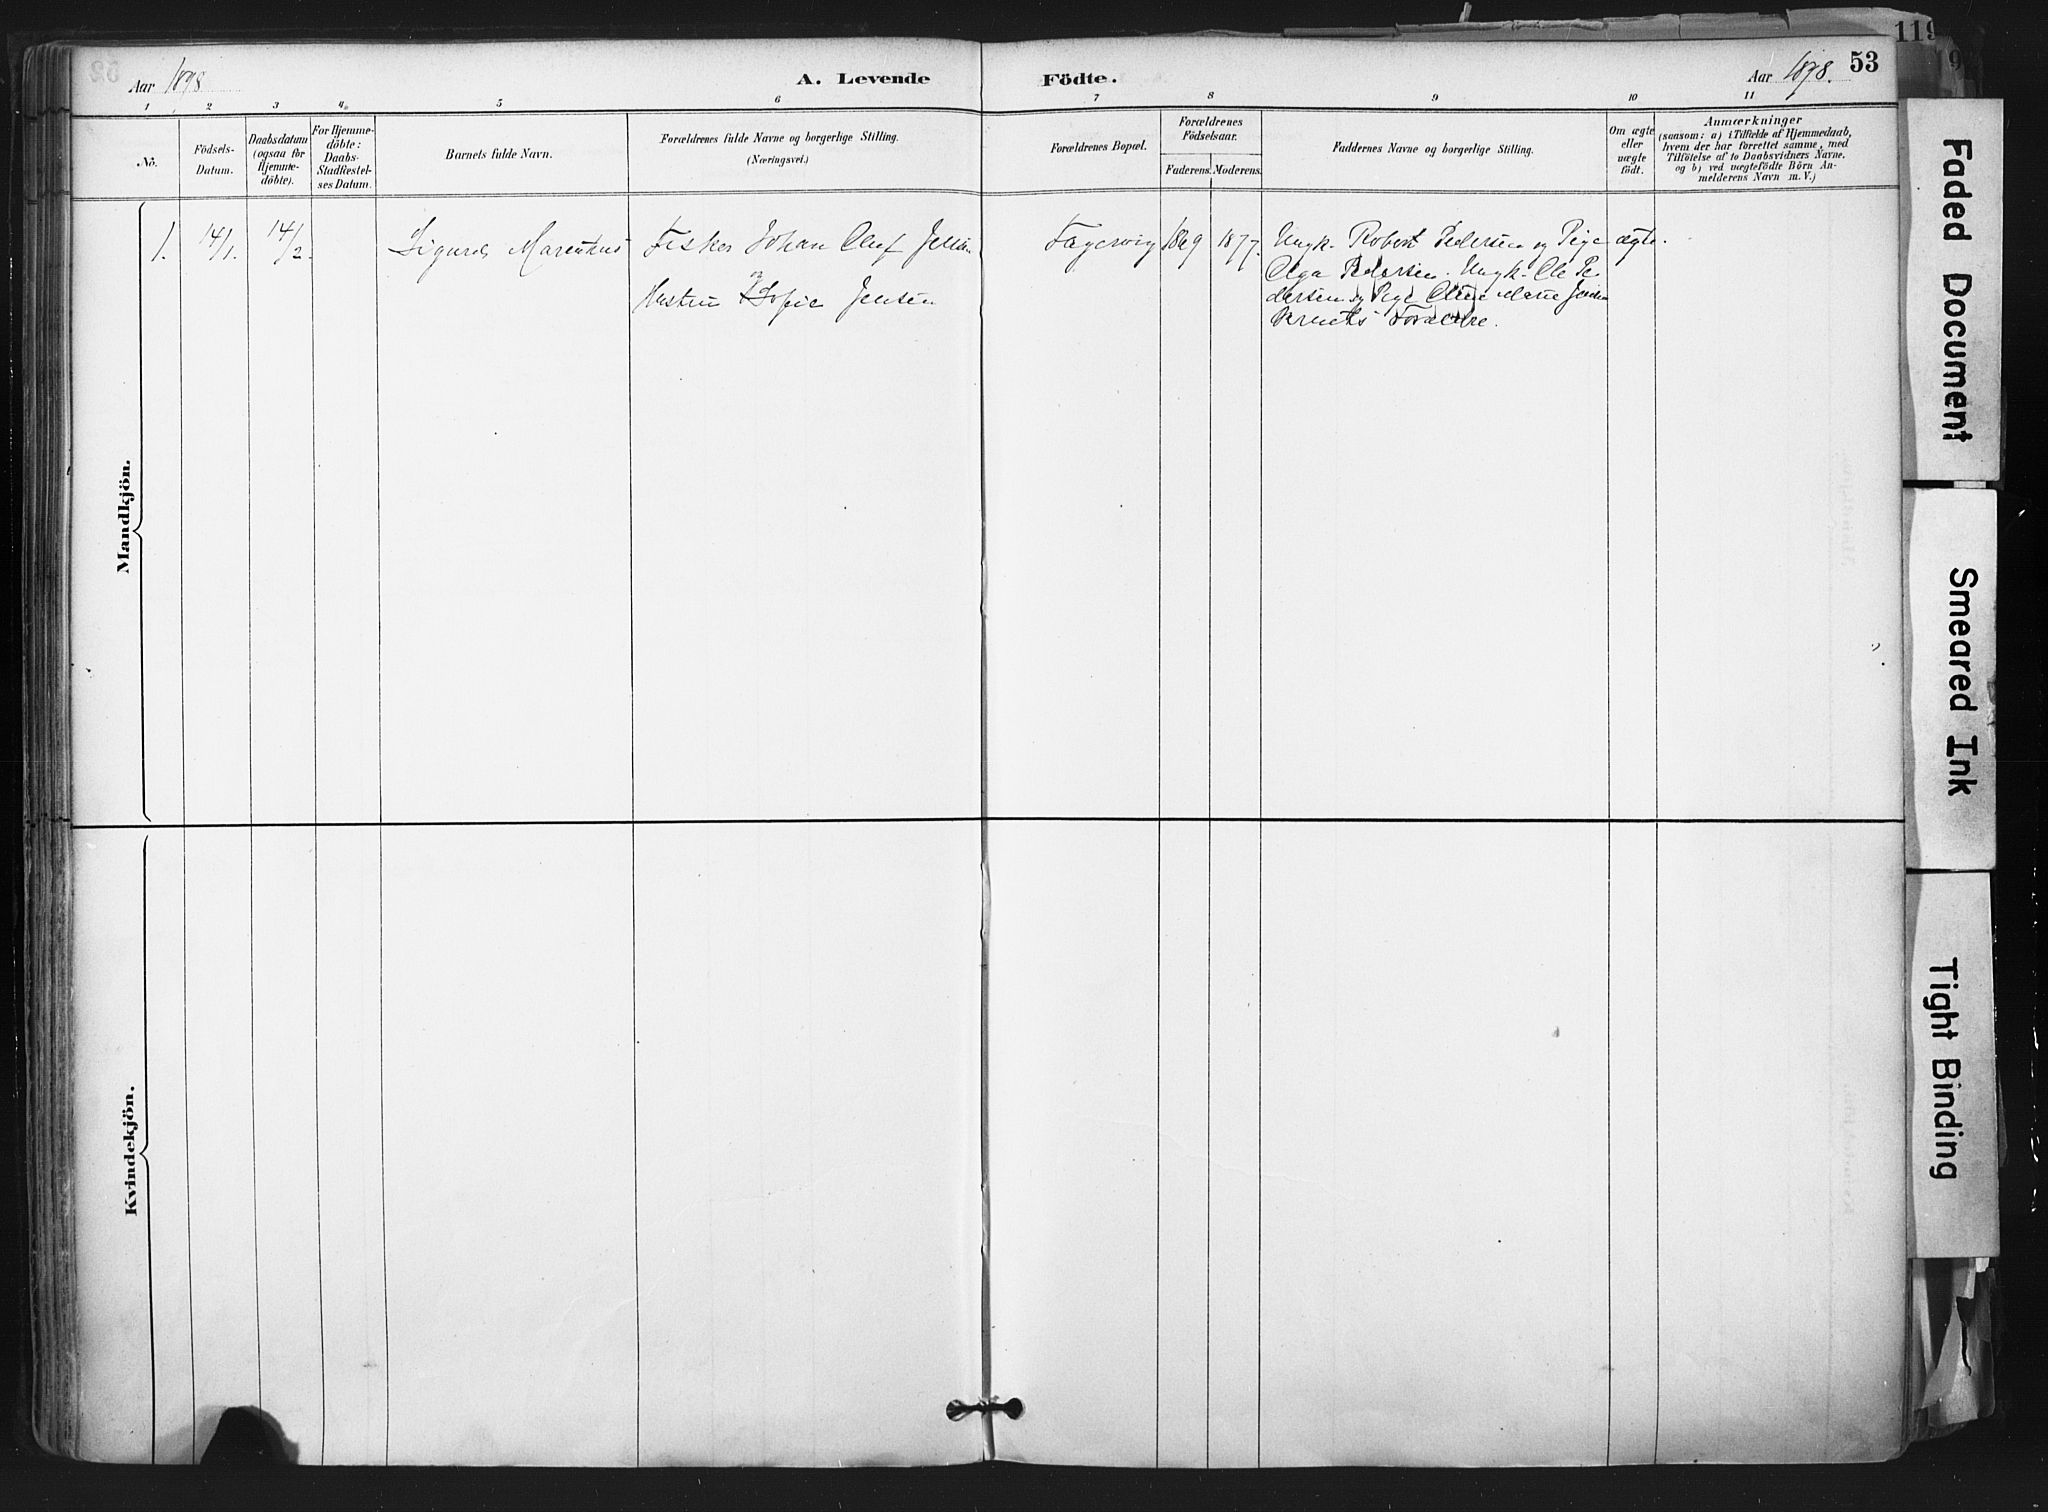 Aar 1898
A. Levende
Födte.
Aar 1898.
53
119
1 2 3 4 5 6 7 8 9 10 11
No.
Födsels-
Datum.
Daabsdatum
(ogsaa for
Hjemme-
döbte).
For Hjemme-
döbte:
Daabs-
Stadfestel-
ses Datum.
Barnets fulde Navn.
Forældrenes fulde Navne og borgerlige Stilling.
(Næringsvei.)
Forældrenes Bopæl.
Forældrenes
Födselsaar.
Faderens. Moderens.
Faddernes Navne og borgerlige Stilling.
Om ægte
eller
uægte
födt.
Anmærkninger
(saasom: a) i Tilfælde af Hjemmedaab,
hvem der har forrettet samme, med
Tilföielse af to Daabsvidners Navne.
og b) ved uægtefödte Börn An-
melderens Navn m. V.)
Mandkjön.
1. 14/1. 14/2.
Sigurd Marentius
Fisker Johan Oluf Jensen
Hustru Sofie Jensen
Fagervig
1869 1877.
Ungk. Robert Pedersen og Pige
Olga Pedersen. Ungk. Ole Pe-
dersen og Pige Marie
Forældre.
ægte.
Kvindekjön.
Faded Document
Smeared Ink
Tight Binding